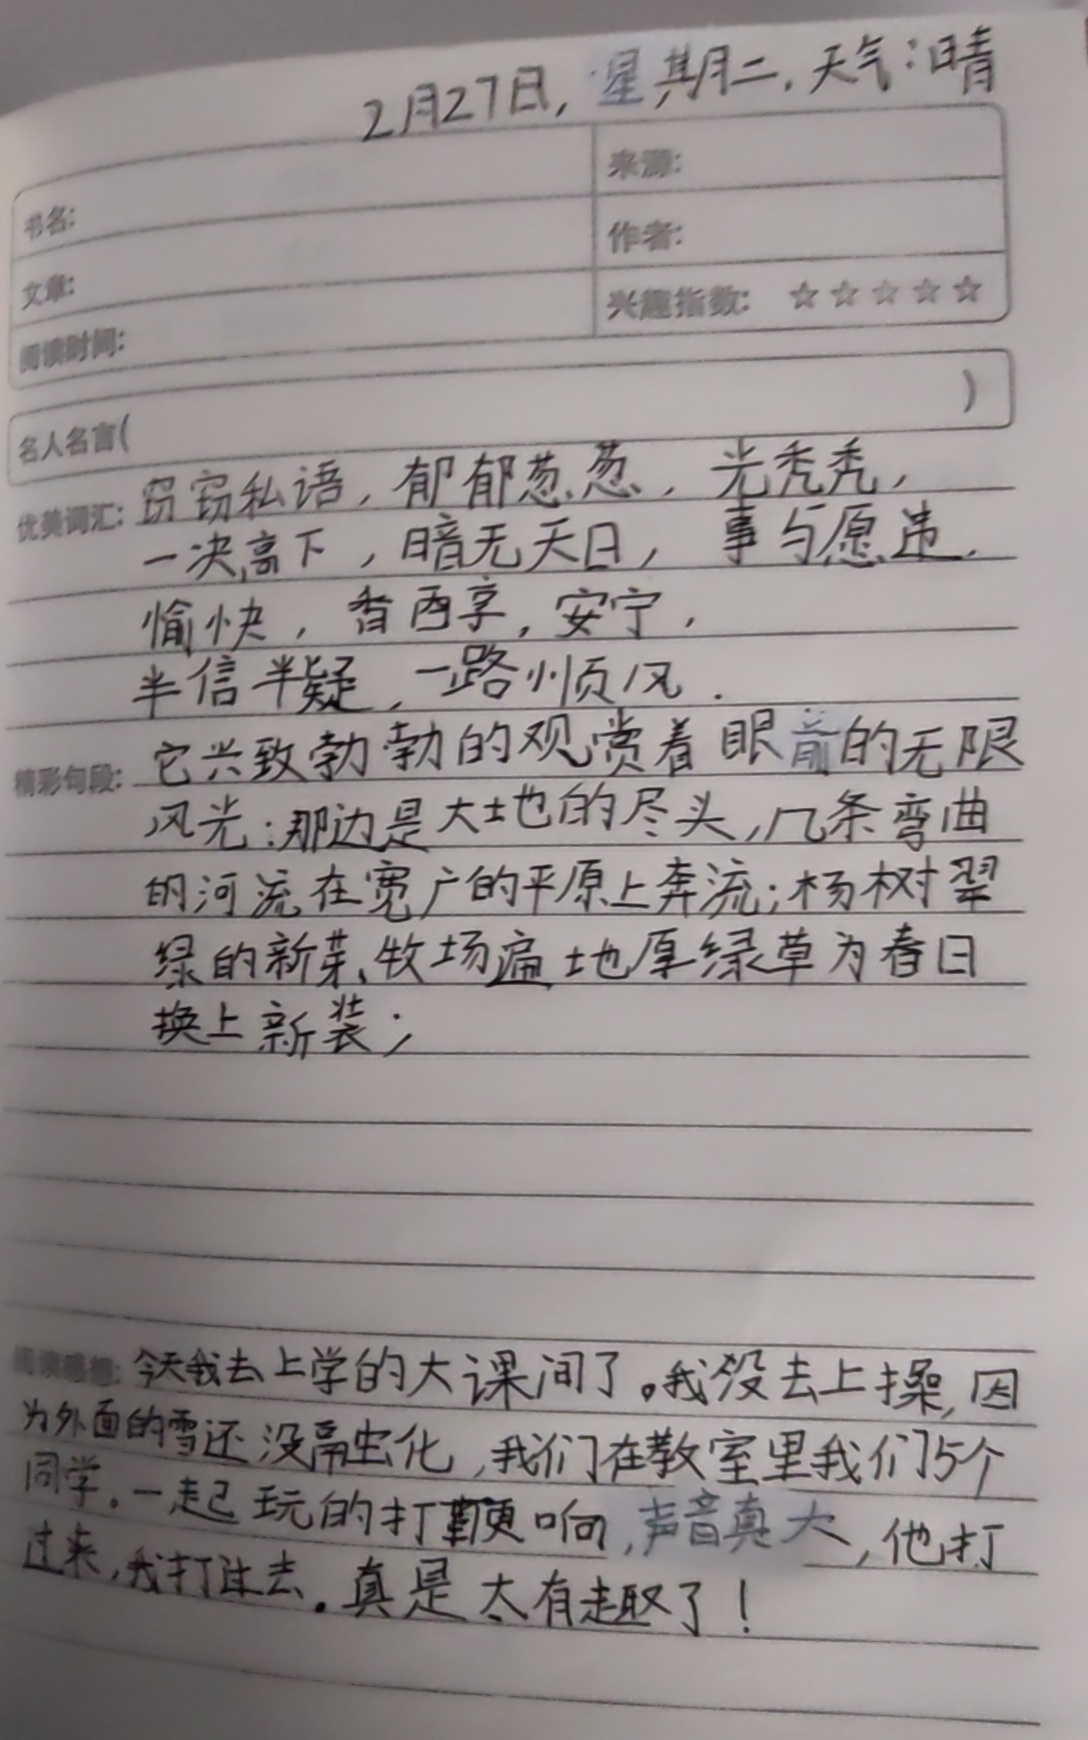 2月27日，星期二，天气：晴
书名：
来源：
文章：
作者：
阅读时间：
兴趣指数：☆☆☆☆☆
名人名言( )
优美词汇：窃窃私语，郁郁葱葱，光秃秃，
一决高下，暗无天日，事与愿违，
愉快，安宁，
半信半疑，一路顺风．
精彩句段：它兴致勃勃的观赏着眼前的无限
风光：那边是大地的尽头，几条弯曲
的河流在宽广的平原上奔流；杨树翠
绿的新芽、牧场遍地厚绿草为春日
换上新装；
阅读感想：今天我去上学的大课间了。我没去上操，因
为外面的雪还没融化，我们在教室里我们5个
同学。一起玩的打响，声音真大，他打
过来，我打过去。真是太有趣了！